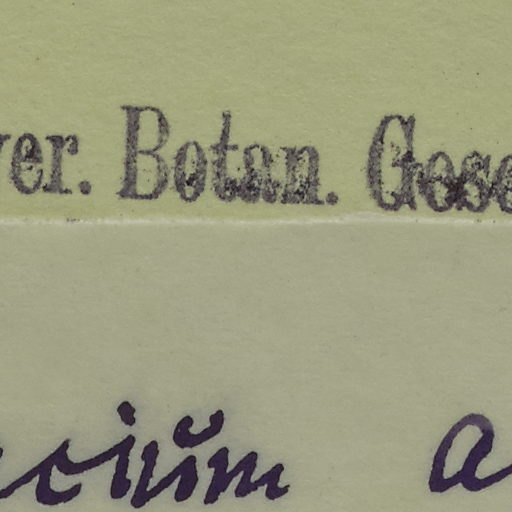 yer. Botan. Gese
cium a